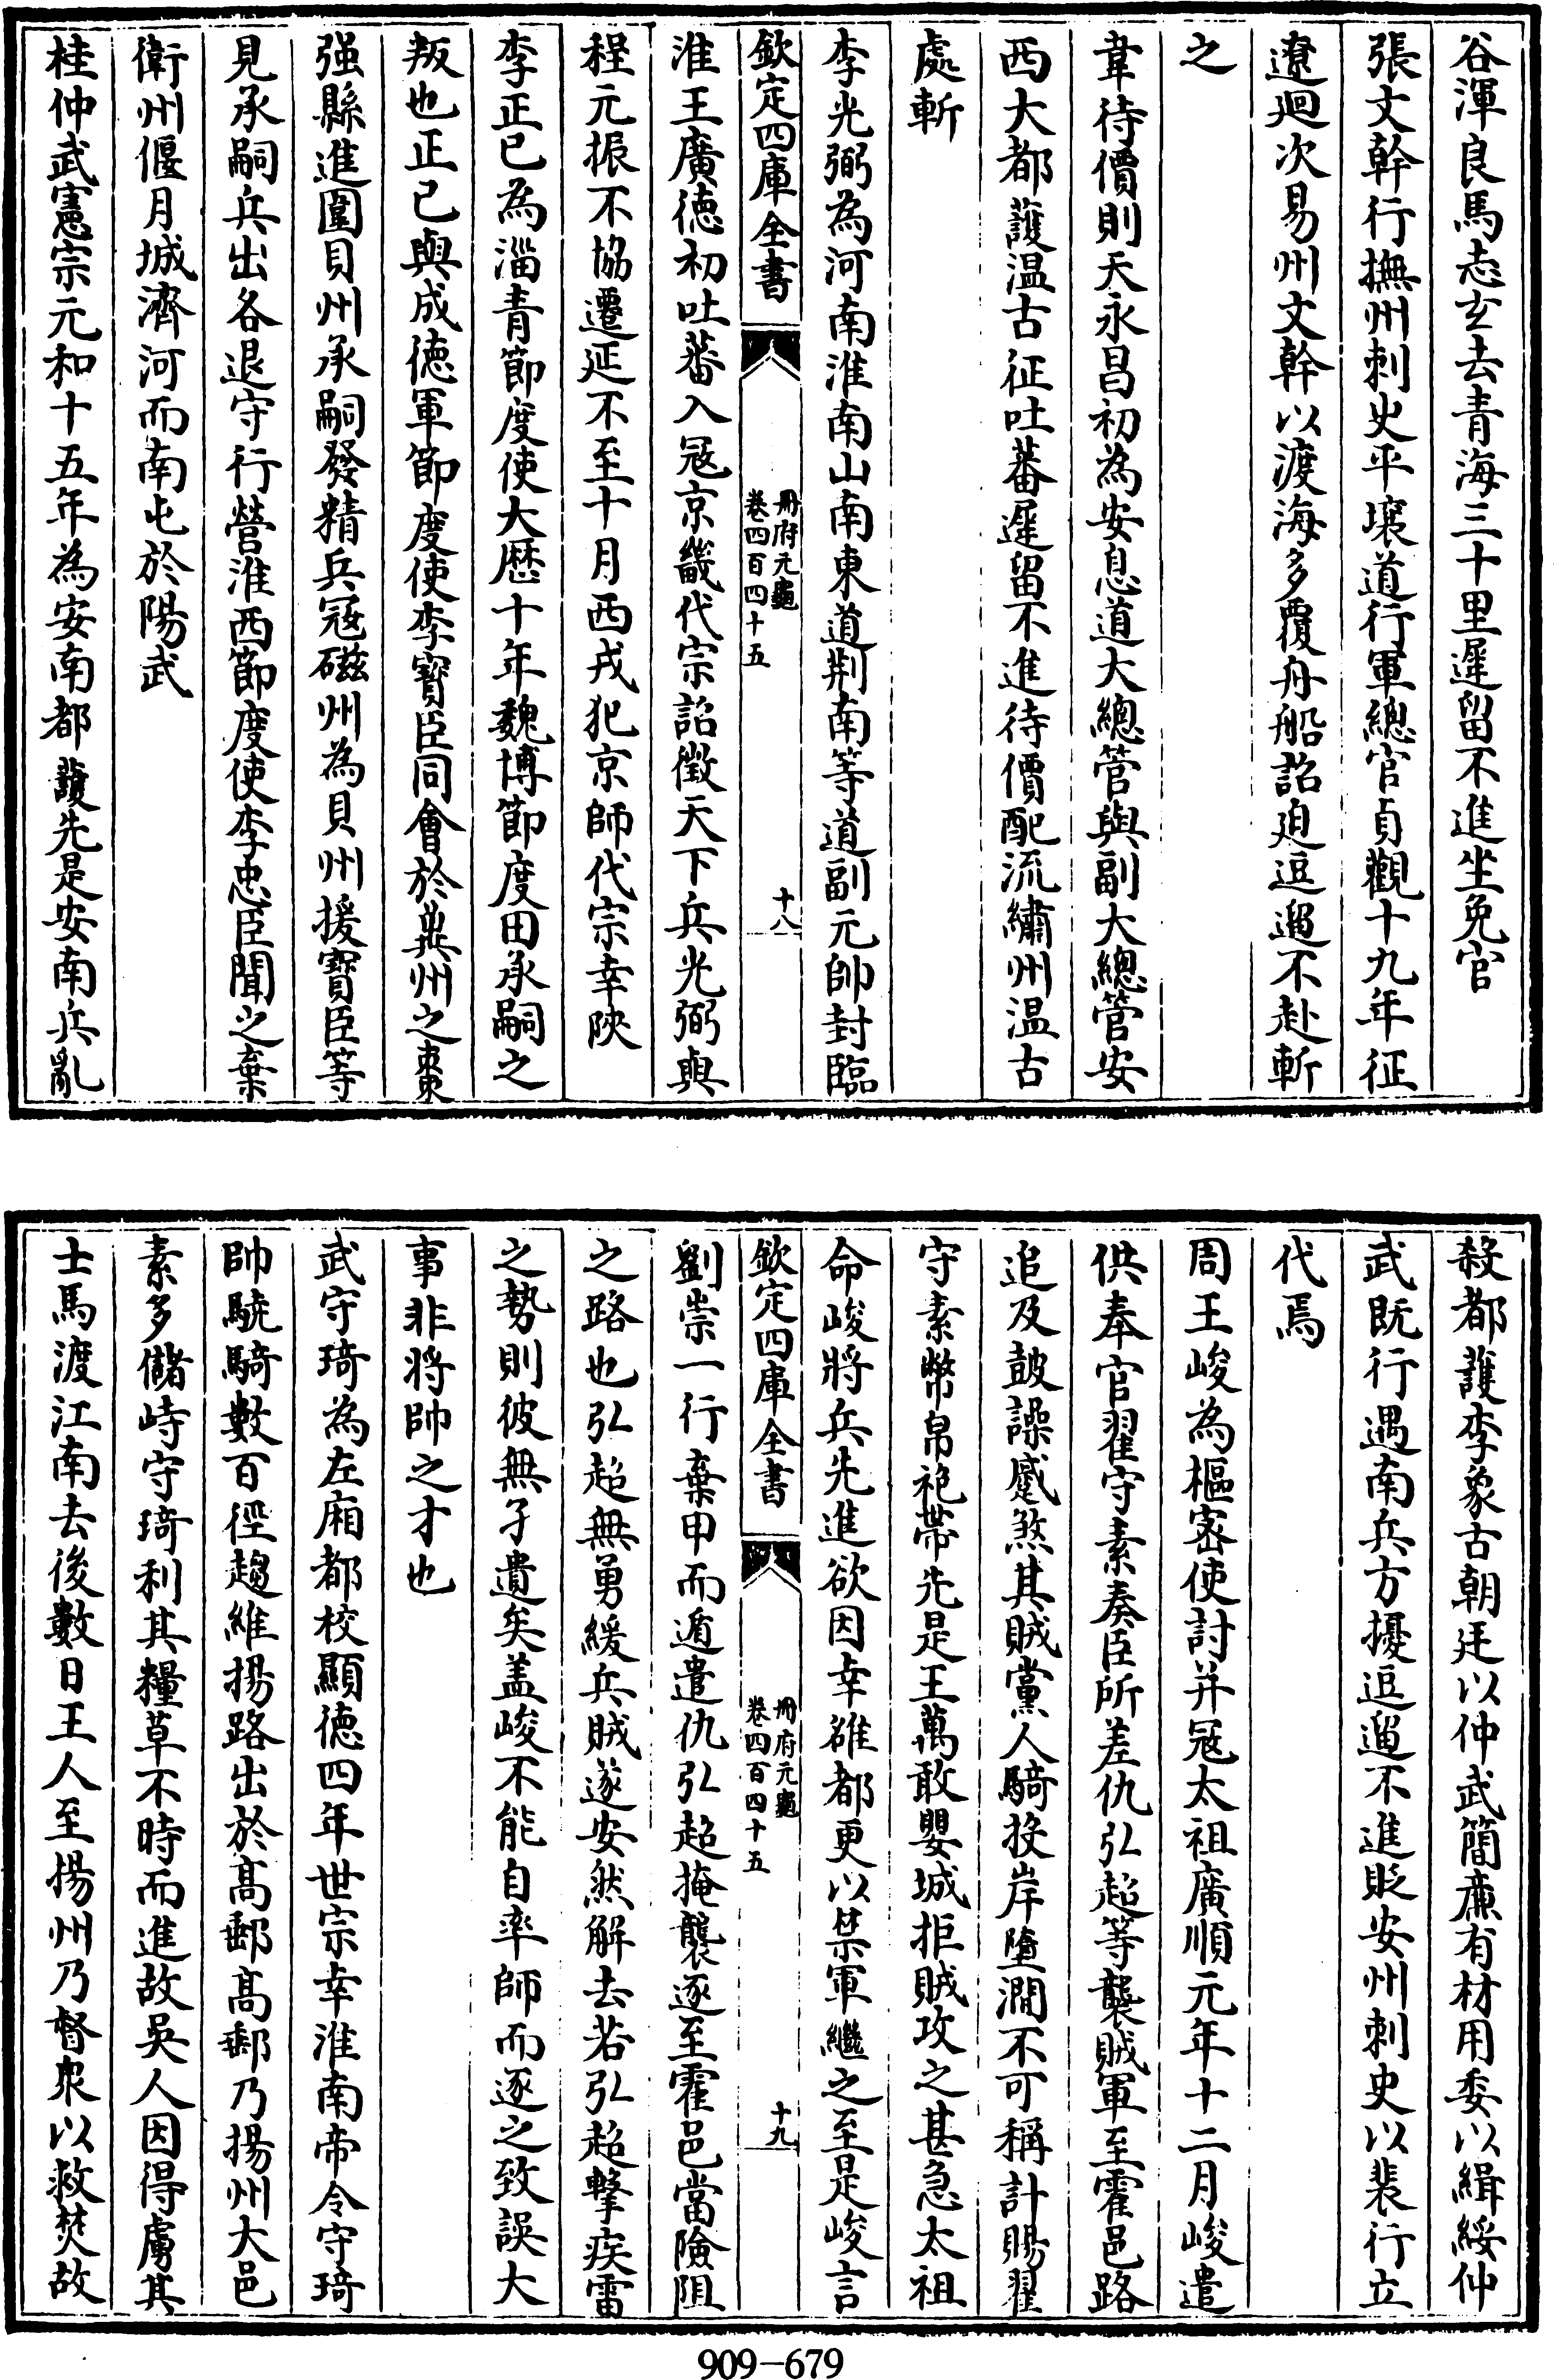 谷渾良馬志玄去青海三十里遲留不進坐免官
張文幹行撫州刺史平壤道行軍總官貞觀十九年征
遼廻次易州文幹以渡海多覆舟船詔廹逗遛不赴斬
之
韋待價則天永昌初為安息道大總管與副大總管安
西大都護温古征吐蕃遲留不進待價配流繡州温古
處斬
李光弼為河南淮南山南東道荆南等道副元帥封臨
欽定四庫全書
冊府元龜
卷四百四十五
十八
淮王廣德初吐蕃入冦京畿代宗詔徵天下兵光弼與
程元振不協遷延不至十月西戎犯京師代宗幸陜
李正已為淄青節度使大歴十年魏博節度田承嗣之
叛也正已與成德軍節度使李寳臣同會於冀州之棗
强縣進圍貝州承嗣發精兵冦磁州為貝州援寳臣等
見承嗣兵出各退守行營淮西節度使李忠臣聞之棄
衛州偃月城濟河而南屯於陽武
桂仲武憲宗元和十五年為安南都護先是安南兵亂
殺都護李象古朝廷以仲武簡亷有材用委以緝綏仲
武既行遇南兵方擾逗遛不進貶安州刺史以裴行立
代焉
周王峻為樞宻使討并冦太祖廣順元年十二月峻遣
供奉官翟守素奏臣所差仇弘超等襲賊軍至霍邑路
追及皷譟蹙煞其賊黨人騎投岸墮澗不可稱計賜翟
守素幣帛袍帶先是王萬敢嬰城拒賊攻之甚急太祖
命峻將兵先進欲因幸雒都更以禁軍繼之至是峻言
欽定四庫全書
冊府元龜
卷四百四十五
十九
劉崇一行棄甲而遁遣仇弘超掩襲逐至霍邑當險阻
之路也弘超無勇緩兵賊遂安然解去若弘超擊疾雷
之勢則彼無孑遺矣盖峻不能自率師而逐之致誤大
事非將帥之才也
武守琦為左廂都校顯德四年世宗幸淮南帝令守琦
帥驍騎數百徑趨維揚路出於髙郵髙郵乃揚州大邑
素多儲峙守琦利其糧草不時而進故吳人因得虜其
士馬渡江南去後數日王人至揚州乃督衆以救焚故
909-679